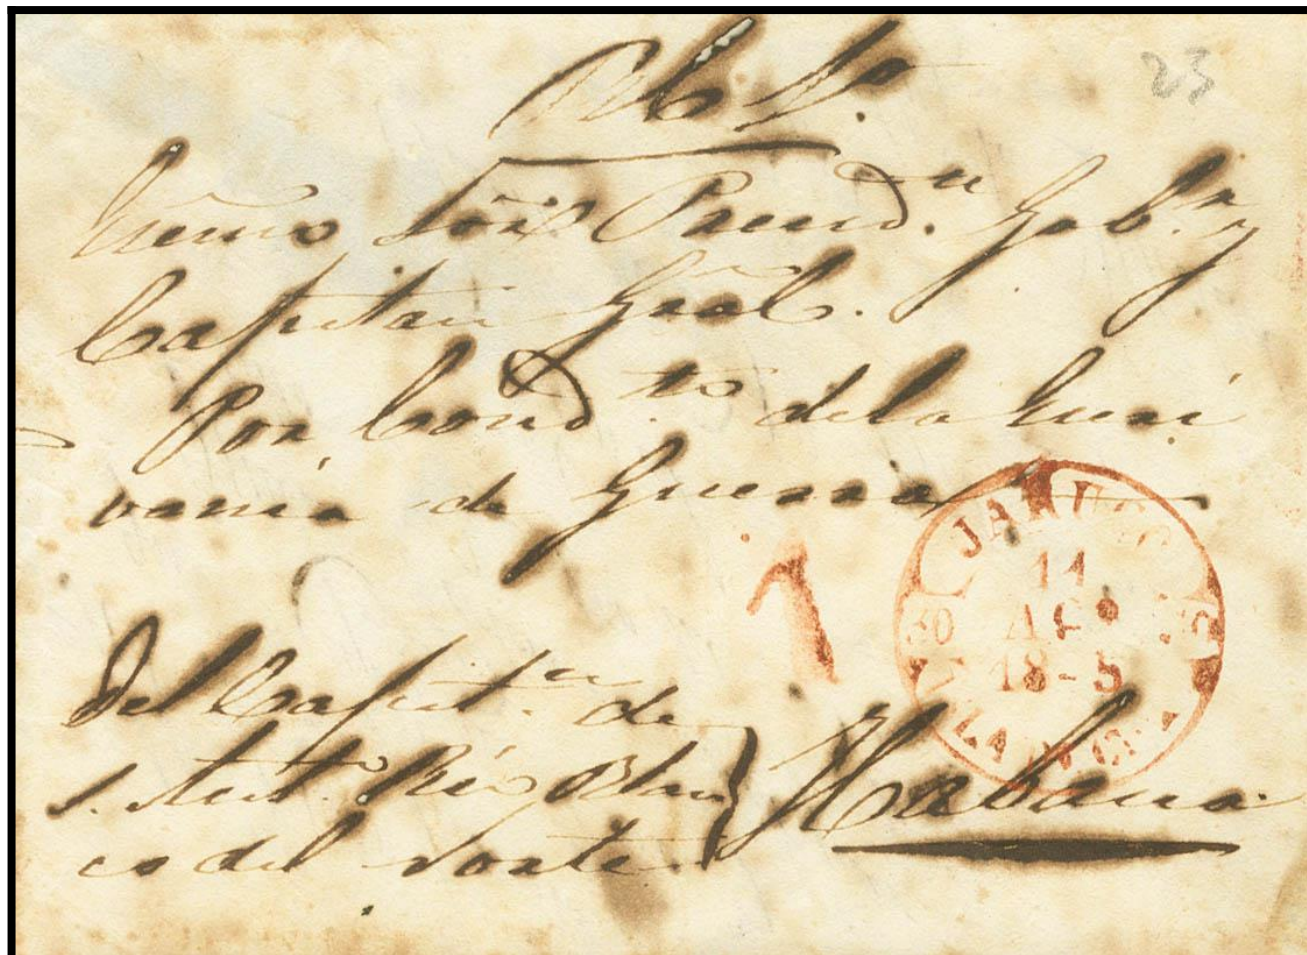 23
Exmo Sōr Presid.n Gob.r y
Capitan Gral.
Por Cond.to de la Escri
vania de Guerra
1
JARUCO
11
AGº
18-5
Del Capit.n de
S. Ant.º Rio Blan
co del Norte.
Habana.